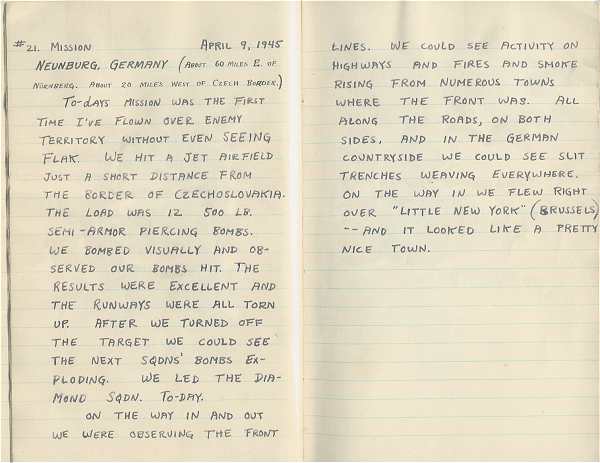 #21. MISSION APRIL 9, 1945
NEUNBURG, GERMANY (ABOUT 60 MILES E. OF
NÜRNBERG. ABOUT 20 MILES WEST OF CZECH BORDER.)
TO-DAYS MISSION WAS THE FIRST
TIME I'VE FLOWN OVER ENEMY
TERRITORY WITHOUT EVEN SEEING
FLAK. WE HIT A JET AIRFIELD
JUST A SHORT DISTANCE FROM
THE BORDER OF CZECHOSLOVAKIA.
THE LOAD WAS 12 500 LB.
SEMI-ARMOR PIERCING BOMBS.
WE BOMBED VISUALLY AND OB-
SERVED OUR BOMBS HIT. THE
RESULTS WERE EXCELLENT AND
THE RUNWAYS WERE ALL TORN
UP. AFTER WE TURNED OFF
THE TARGET WE COULD SEE
THE NEXT SQDNS' BOMBS EX-
PLODING. WE LED THE DIA-
MOND SQDN. TO-DAY.
ON THE WAY IN AND OUT
WE WERE OBSERVING THE FRONT
LINES. WE COULD SEE ACTIVITY ON
HIGHWAYS AND FIRES AND SMOKE
RISING FROM NUMEROUS TOWNS
WHERE THE FRONT WAS. ALL
ALONG THE ROADS, ON BOTH
SIDES, AND IN THE GERMAN
COUNTRYSIDE WE COULD SEE SLIT
TRENCHES WEAVING EVERYWHERE.
ON THE WAY IN WE FLEW RIGHT
OVER "LITTLE NEW YORK" (BRUSSELS)
-- AND IT LOOKED LIKE A PRETTY
NICE TOWN.